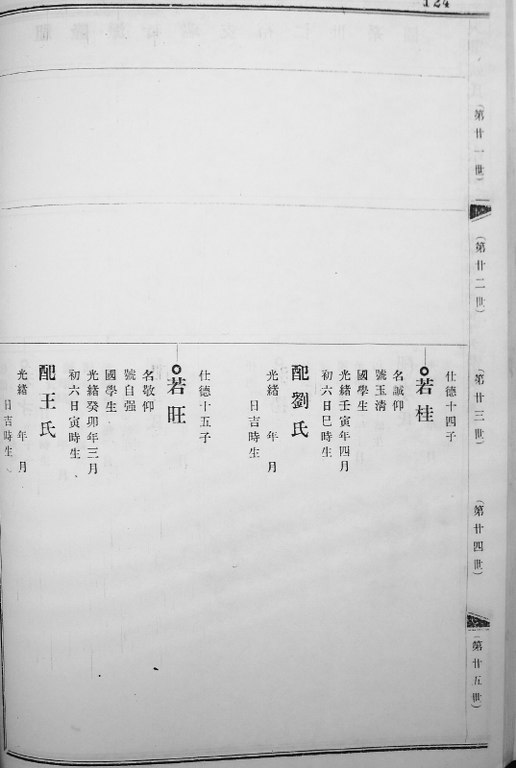 124
（第廿一世）
（第廿二世）
（第廿三世）
（第廿四世）
（第廿五世）
仕德十四子
若桂
名誠仰
號玉清
國學生
光緒壬寅年四月
初六日巳時生
配劉氏
光緒　年　月
日吉時生
仕德十五子
若旺
名敬仰
號自强
國學生
光緒癸卯年三月
初六日寅時生
配王氏
光緒　年　月
日吉時生